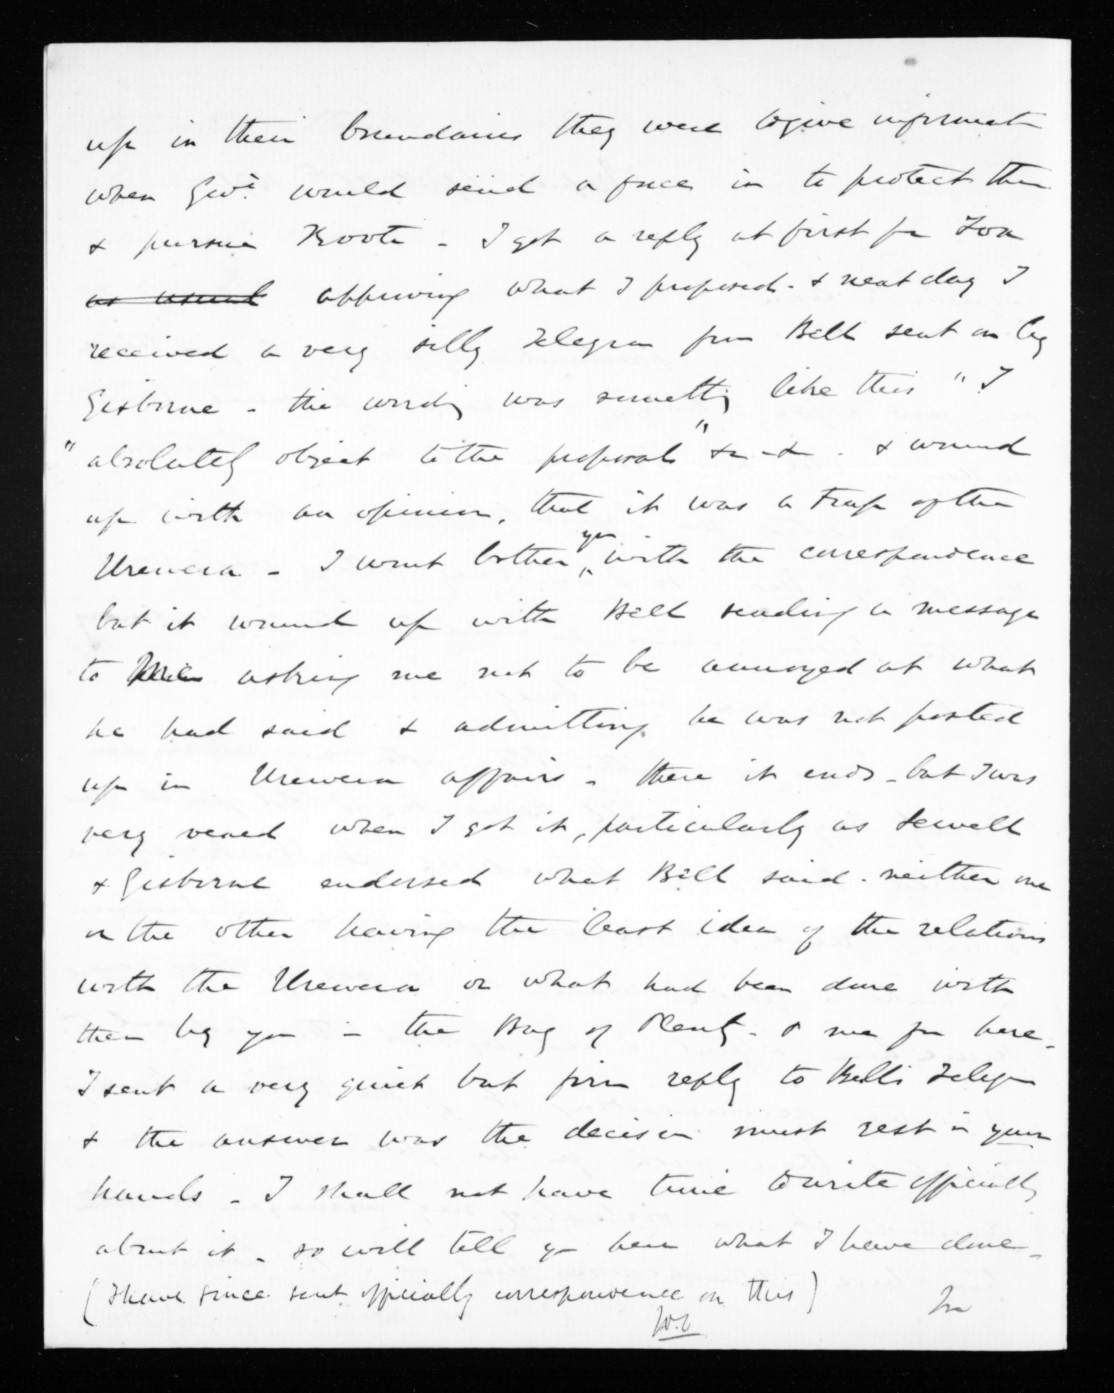 up in their boundaries they were to give informat
when Govt. would send a force in to protect them
& pursue Kooti - I got a reply at first fm Fox
as usual approving what I proposed - & next day I
received a very silly Telegram from Bell sent on by
Gisborne - the wording was something like this " I
" absolutely object to the proposals " &c - &c . & wound
up with an opinion, that it was a trap of the
Urewera - I wont bother you with the correspondence
but it wound up with Bell sending a message
to asking me not to be annoyed at what
he had said & admitting he was not posted
up in Urewera affairs - there it ends - but I was
very vexed when I got it, particularly as Sewell
& Gisborne endorsed what Bell said - neither one
or the other having the least idea of the relations
with the Urewera or what had been done with
them by you in the Bay of Plenty - & me fm here -
I sent a very quiet but firm reply to Bell's Telegm
& the answer was the decision must rest in your
hands - I shall not have time to write officially
about it - so will tell yo here what I have done -
(I have since sent officially correspondence on this)